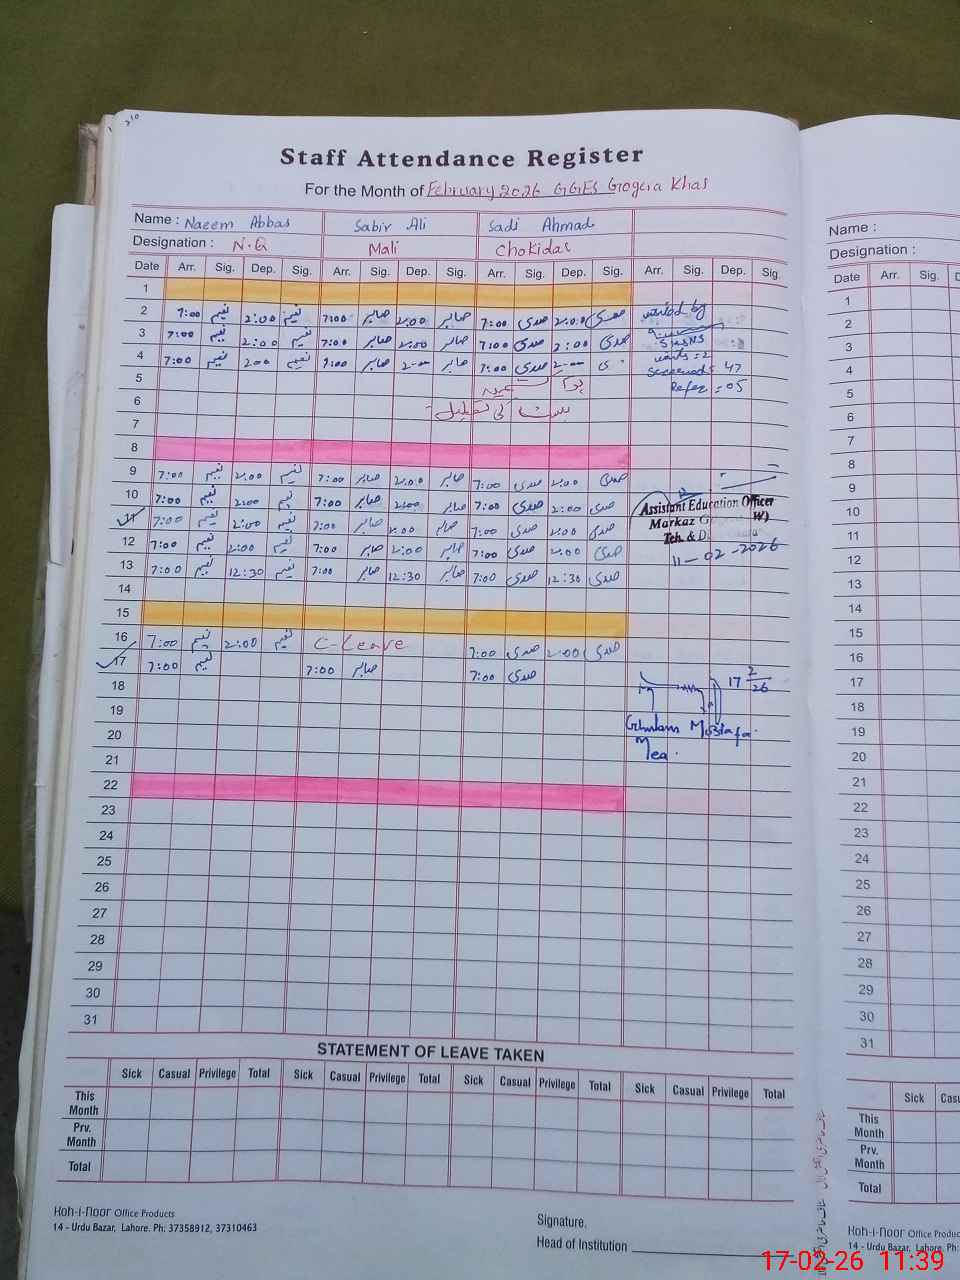 Staff Attendance Register
For the Month of February 2026 GGES Gogera Khas
Name : Naeem Abbas Sabir Ali Sadi Ahmad
Designation : N.Q Mali Chokidar
Date Arr. Sig. Dep. Sig. Arr. Sig. Dep. Sig. Arr. Sig. Dep. Sig. Arr. Sig. Dep. Sig.
1
2 7:00 نعیم 2:00 نعیم 7:00 صابر 2:00 صابر 7:00 صدی 2:00 صدی visited by
3 7:00 نعیم 2:00 نعیم 7:00 صابر 2:00 صابر 7:00 صدی 2:00 صدی
4 7:00 نعیم 200 نعیم 7:00 صابر 2-- صابر 7:00 صدی 2--
= 47
5 Refer = 05
6 بسنت کی تعطیل
7
8
9 7:00 نعیم 2:00 نعیم 7:00 صابر 2:00 صابر 7:00 صدی 2:00 صدی
10 7:00 نعیم 2:00 نعیم 7:00 صابر 2:00 صابر 7:00 صدی 2:00 صدی
Assistant Education Officer
11 7:00 نعیم 2:00 نعیم 7:00 صابر 2:00 صابر 7:00 صدی 2:00 صدی
Markaz W)
Teh. & D
12 7:00 نعیم 2:00 نعیم 7:00 صابر 2:00 صابر 7:00 صدی 2:00 صدی
11-02-2026
13 7:00 نعیم 12:30 نعیم 7:00 صابر 12:30 صابر 7:00 صدی 12:30 صدی
14
15
16 7:00 نعیم 2:00 نعیم C-Leave 7:00 صدی 2:00 صدی
17 7:00 نعیم 7:00 صابر 7:00 صدی
17 2/26
18
19
Ghulam Mustafa
20
Mea.
21
22
23
24
25
26
27
28
29
30
31
STATEMENT OF LEAVE TAKEN
Sick Casual Privilege Total Sick Casual Privilege Total Sick Casual Privilege Total Sick Casual Privilege Total
This Month
Prv. Month
Total
Koh-i-Noor Office Products
14 - Urdu Bazar, Lahore. Ph: 37358912, 37310463
Signature.
Head of Institution
Name :
Designation :
Date Arr. Sig.
1
2
3
4
5
6
7
8
9
10
11
12
13
14
15
16
17
18
19
20
21
22
23
24
25
26
27
28
29
30
31
Sick
This Month
Prv. Month
Total
Koh-i-Noor Office
14 - Urdu Bazar, Lahore.
17-02-26 11:39